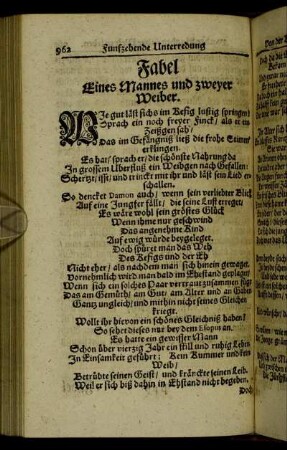 962 Funfzehende Unterredung
Fabel
Eines Mannes und zweyer
Weiber.
WJe gut läst sichs im Kefig lustig springen?
Sprach ein noch freyer Finck/ als er ein
Zeißgen sah/
Das im Gefängniß ließ die frohe Stimm'
erklingen.
Es hat/ sprach er/ die schönste Nahrung da
In grossem Uberfluß ein Weibgen nach Gefallen:
Schertzt/ isst/ und trinckt mit ihr und läst sein Lied er-
schallen.
So dencket Damon auch/ wenn sein verliebter Blick
Auf eine Jungfer fällt/ die seine Lust erreget:
Es wäre wohl sein gröstes Glück
Wenn ihme nur geschwind
Das angenehme Kind
Auf ewig würde beygeleget.
Doch spüret man das Weh
Des Kefigs und der Eh
Nicht eher/ als nachdem man sich hinein gewaget.
Vornehmlich wird man bald im Ehestand geplaget/
Wenn sich ein solches Paar vertraut zusammen fügt
Das am Gemüth/ am Gut/ am Alter und an Güte
Gantz ungleich/ und mithin nicht seines Gleichen
kriegt.
Wollt ihr hiervon ein schönes Gleichniß haben/
So sehet dieses nur bey dem Esopus an.
Es hatte ein gewisser Mann
Schon über viertzig Jahr ein still und ruhig Leben
In Einsamkeit geführt: Kein Kummer und kein
Weib/
Betrübte seinen Geist/ und kränckte seinen Leib.
Weil er sich biß dahin in Ehstand nicht begeben.
Doch